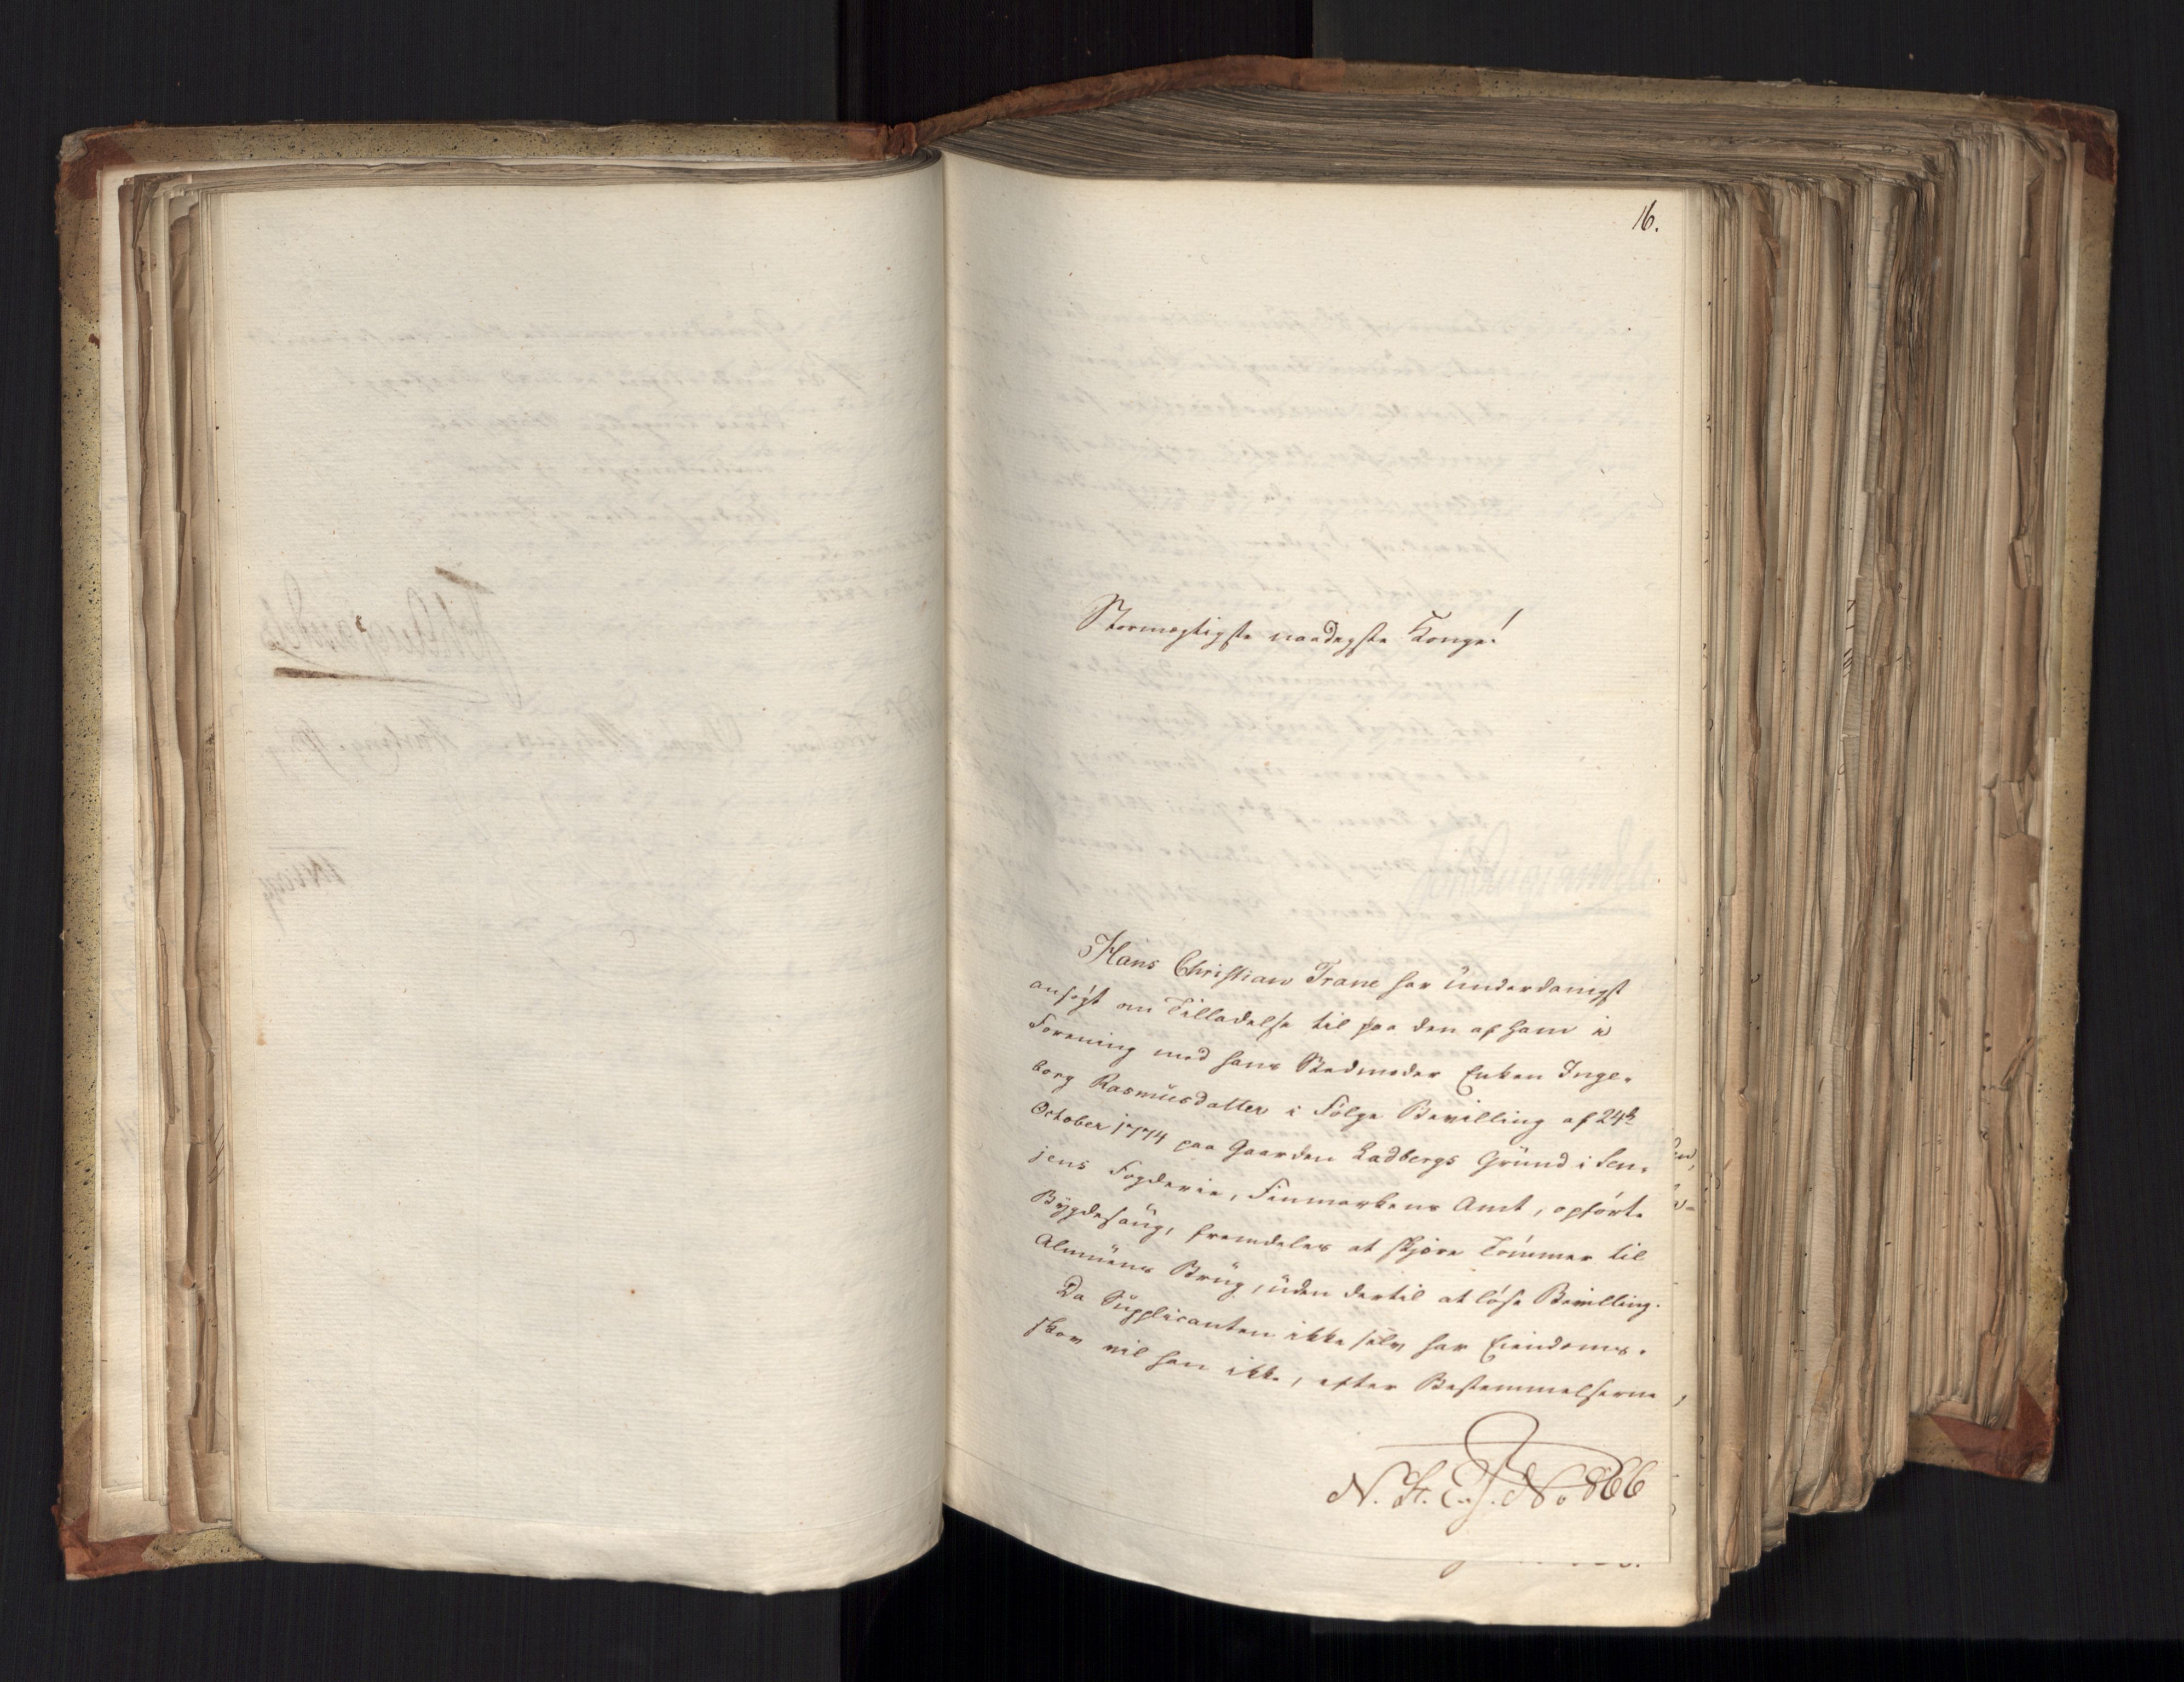 16.
Stormægtigste naadigste Konge!
Hans Christian Trane har underdanigst
ansøgt om Tilladelse til paa den af ham i
Forening med hans Stedmoder Enken Inge-
borg Rasmusdatter i Følge Bevilling af 24de
October 1774 paa Gaarden Ladbergs Grund i Sen-
jens Fogderie, Finmarkens Amt, opførte
Bygdesaug, fremdeles at skjære Tømmer til
Almuens Brug, uden dertil at løse Bevilling.
Da Supplicanten ikke selv har Eiendoms-
skov vil han ikke, efter Bestemmelserne
N. St. E. J. No. 866